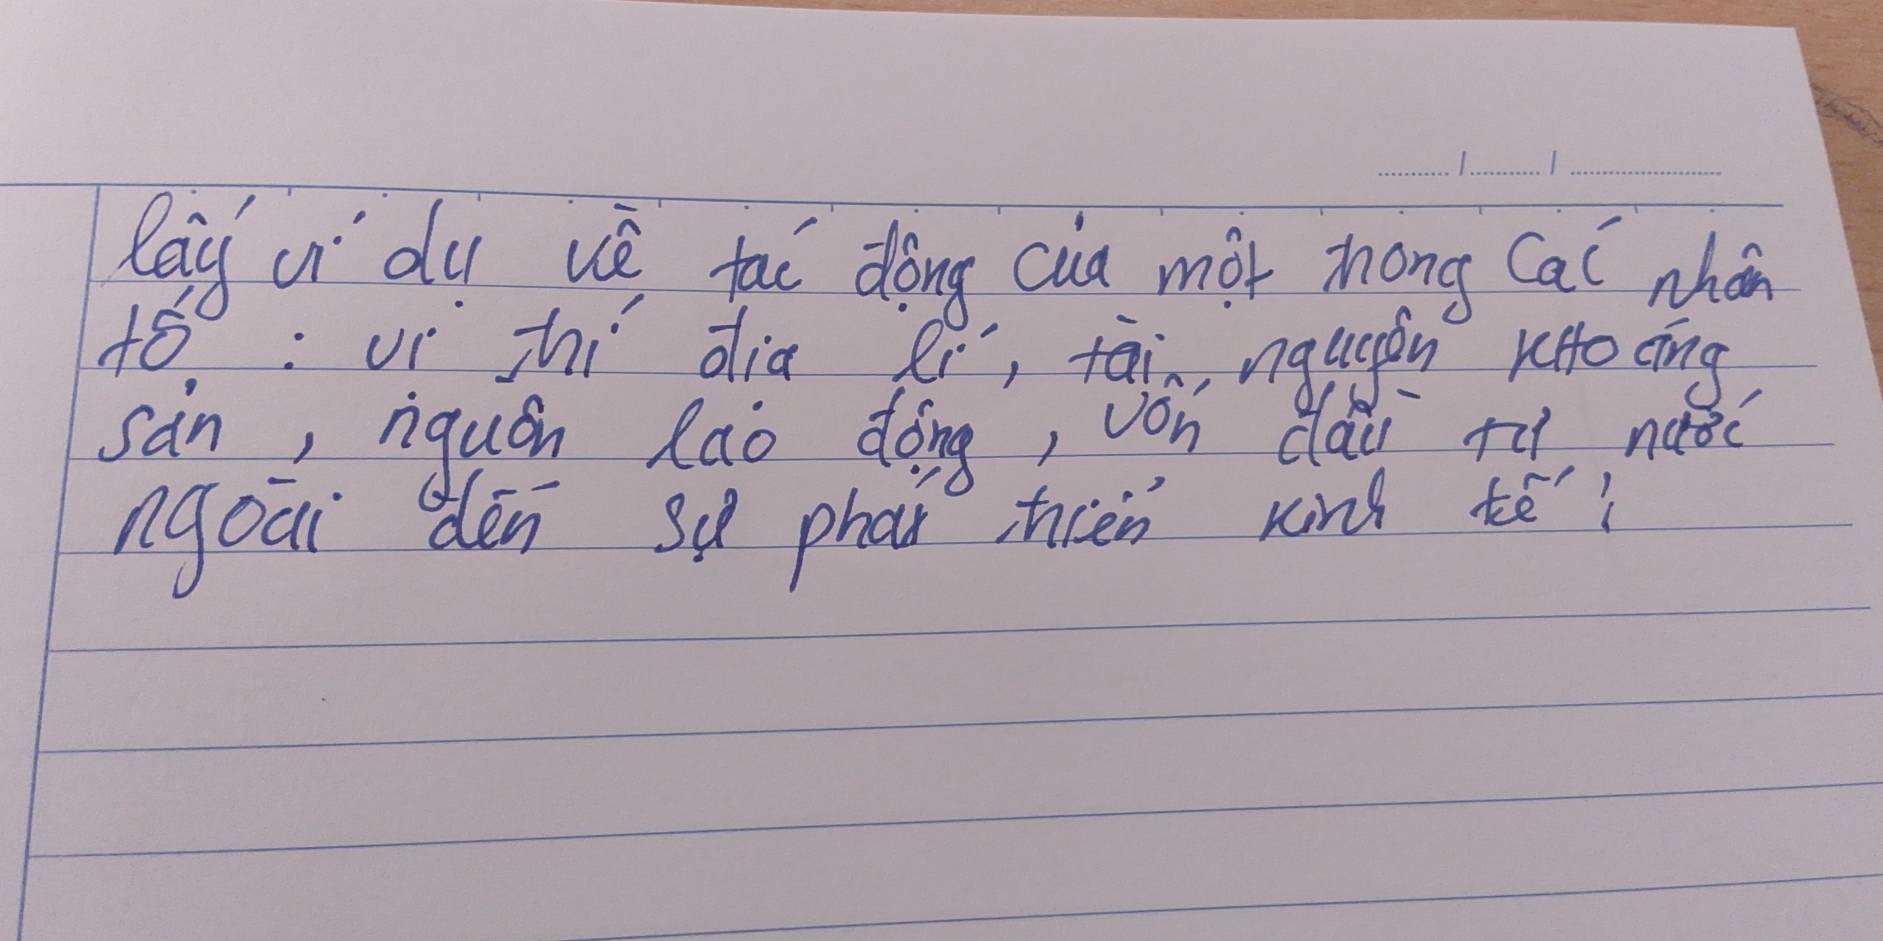 lấy ví dụ về tác động của một trong các nhân
tố : vị trí địa lí, tài nguyên khoáng
sản, nguồn lao động, vốn đầu tư nước
ngoài đến sự phát triển kinh tế?